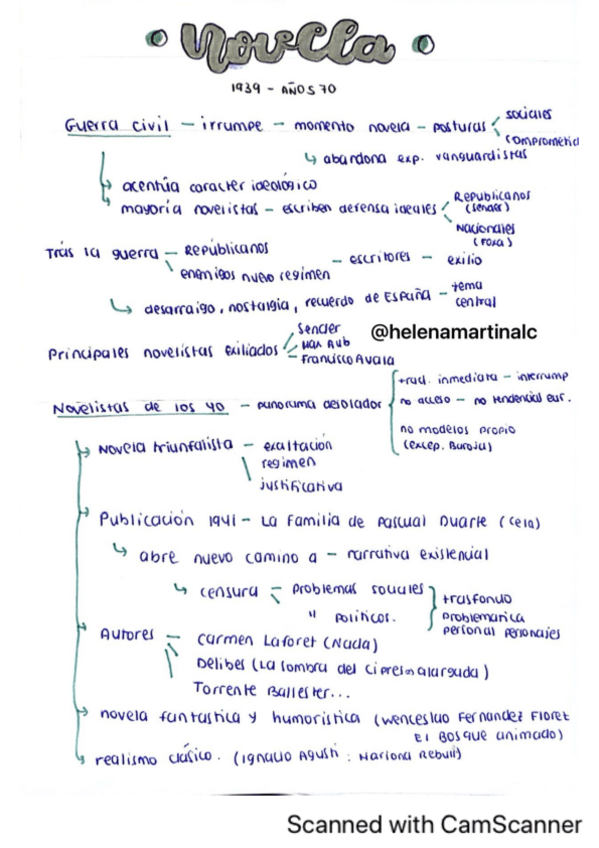 Novella
1939 - AÑOS 70
Guerra civil - irrumpe - momento novela - posturas sociales
comprometid
↳ abandona exp. vanguardistas
acentúa caracter ideológico
mayoría novelistas - escriben defensa ideales Republicanos
(Sender)
Nacionales
(Foxa)
Trás la guerra - Republicanos
enemigos nuevo regimen - escritores - exilio
↳ desarraigo, nostalgia, recuerdo de España - tema
central
@helenamartinalc
Principales novelistas exiliados Sender
Max Aub
Francisco Ayala
Novelistas de los 40 - panorama desolador
trad. inmediata - interrump
no acceso - no tendencial eur.
no modelos propio
(excep. Baroja)
Novela triunfalista - exaltación
regimen
justificativa
Publicación 1941 - La Familia de Pascual Duarte (Cela)
↳ abre nuevo camino a - narrativa existencial
↳ censura - problemas sociales
" políticos.
trasfondo
problematica
personal personajes
Autores - Carmen Laforet (Nada)
Delibes (La sombra del cipres alargada)
Torrente Ballester...
novela fantastica y humoristica (Wenceslao Fernandez Floret
El Bosque animado)
realismo clásico. (Ignacio Agusti : Mariona Rebull)
Scanned with CamScanner